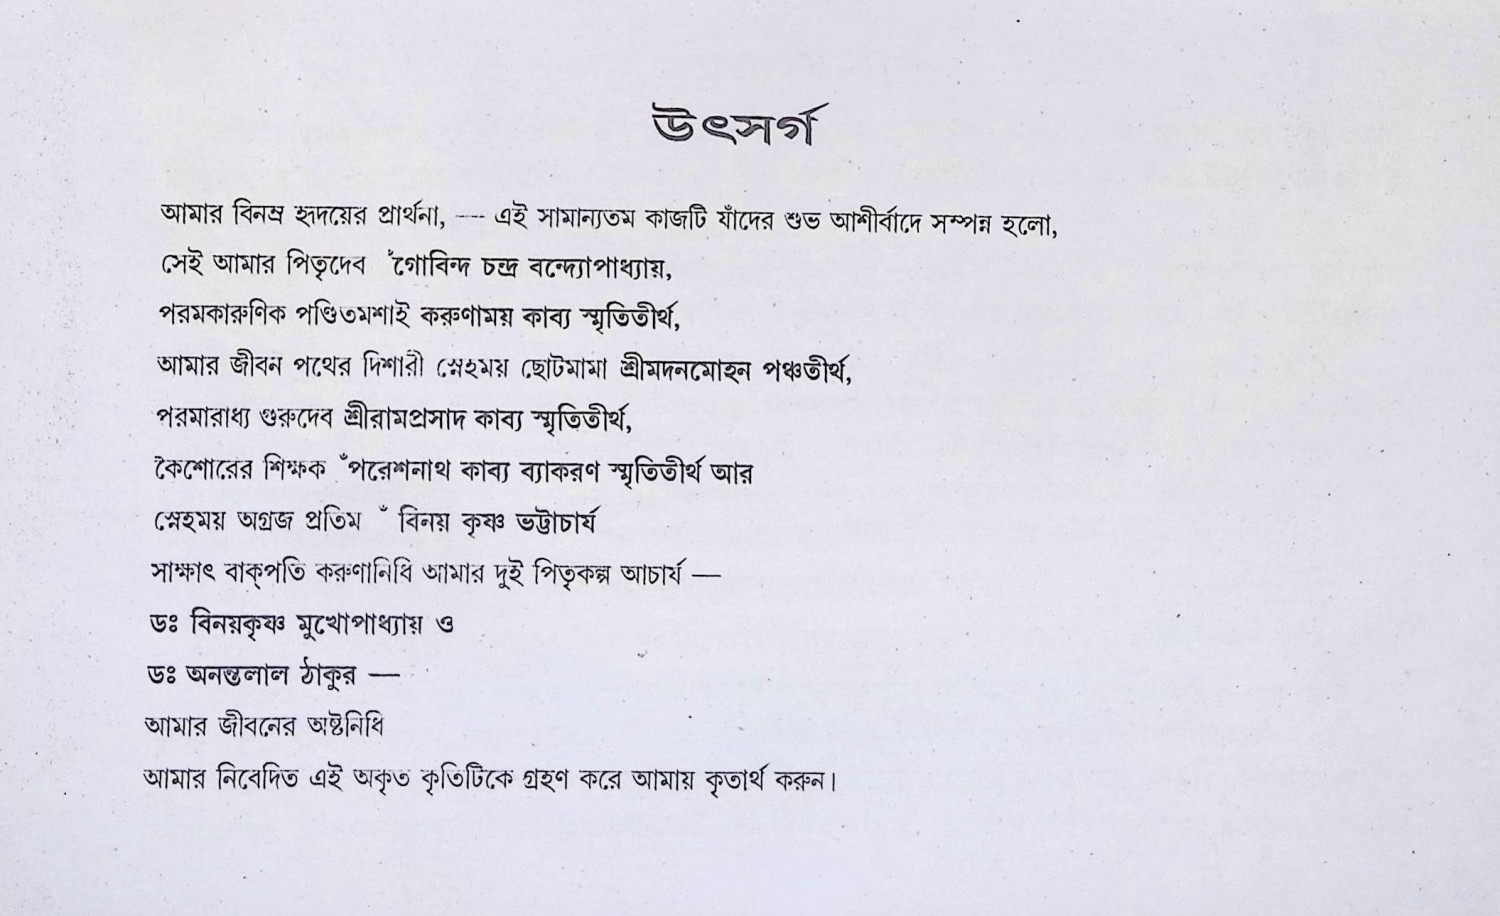 উৎসর্গ
আমার বিনম্র হৃদয়ের প্রার্থনা, --- এই সামান্যতম কাজটি যাঁদের শুভ আশীর্বাদে সম্পন্ন হলো,
সেই আমার পিতৃদেব ঁগোবিন্দ চন্দ্র বন্দ্যোপাধ্যায়,
পরমকারুণিক পণ্ডিতমশাই করুণাময় কাব্য স্মৃতিতীর্থ,
আমার জীবন পথের দিশারী স্নেহময় ছোটমামা শ্রীমদনমোহন পঞ্চতীর্থ,
পরমারাধ্য গুরুদেব শ্রীরামপ্রসাদ কাব্য স্মৃতিতীর্থ,
কৈশোরের শিক্ষক ঁপরেশনাথ কাব্য ব্যাকরণ স্মৃতিতীর্থ আর
স্নেহময় অগ্রজ প্রতিম ঁ বিনয় কৃষ্ণ ভট্টাচার্য
সাক্ষাৎ বাক্‌পতি করুণানিধি আমার দুই পিতৃকল্প আচার্য —
ডঃ বিনয়কৃষ্ণ মুখোপাধ্যায় ও
ডঃ অনন্তলাল ঠাকুর —
আমার জীবনের অষ্টনিধি
আমার নিবেদিত এই অকৃত কৃতিটিকে গ্রহণ করে আমায় কৃতার্থ করুন।